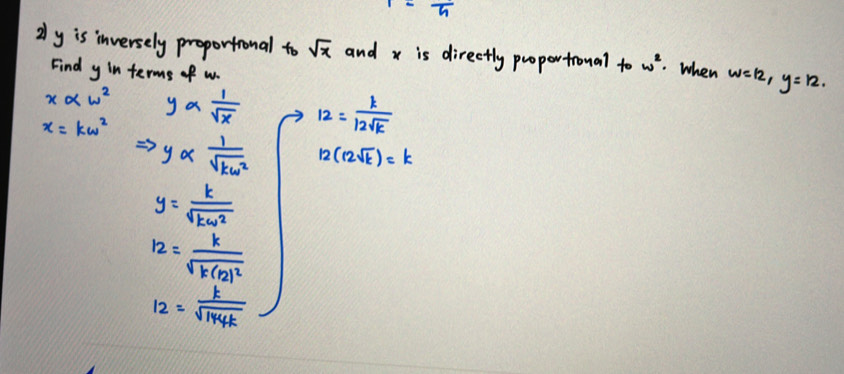 2) y is inversely proportional to √x and x is directly proportional to w². When w=12, y=12.
Find y in terms of w.
x ∝ w²
x = kw²
y ∝ 1/√x
⇒ y ∝ 1/√kw²
y = k/√kw²
12 = k/√k(12)²
12 = k/√144k
→ 12 = k/12√k
12(12√k) = k